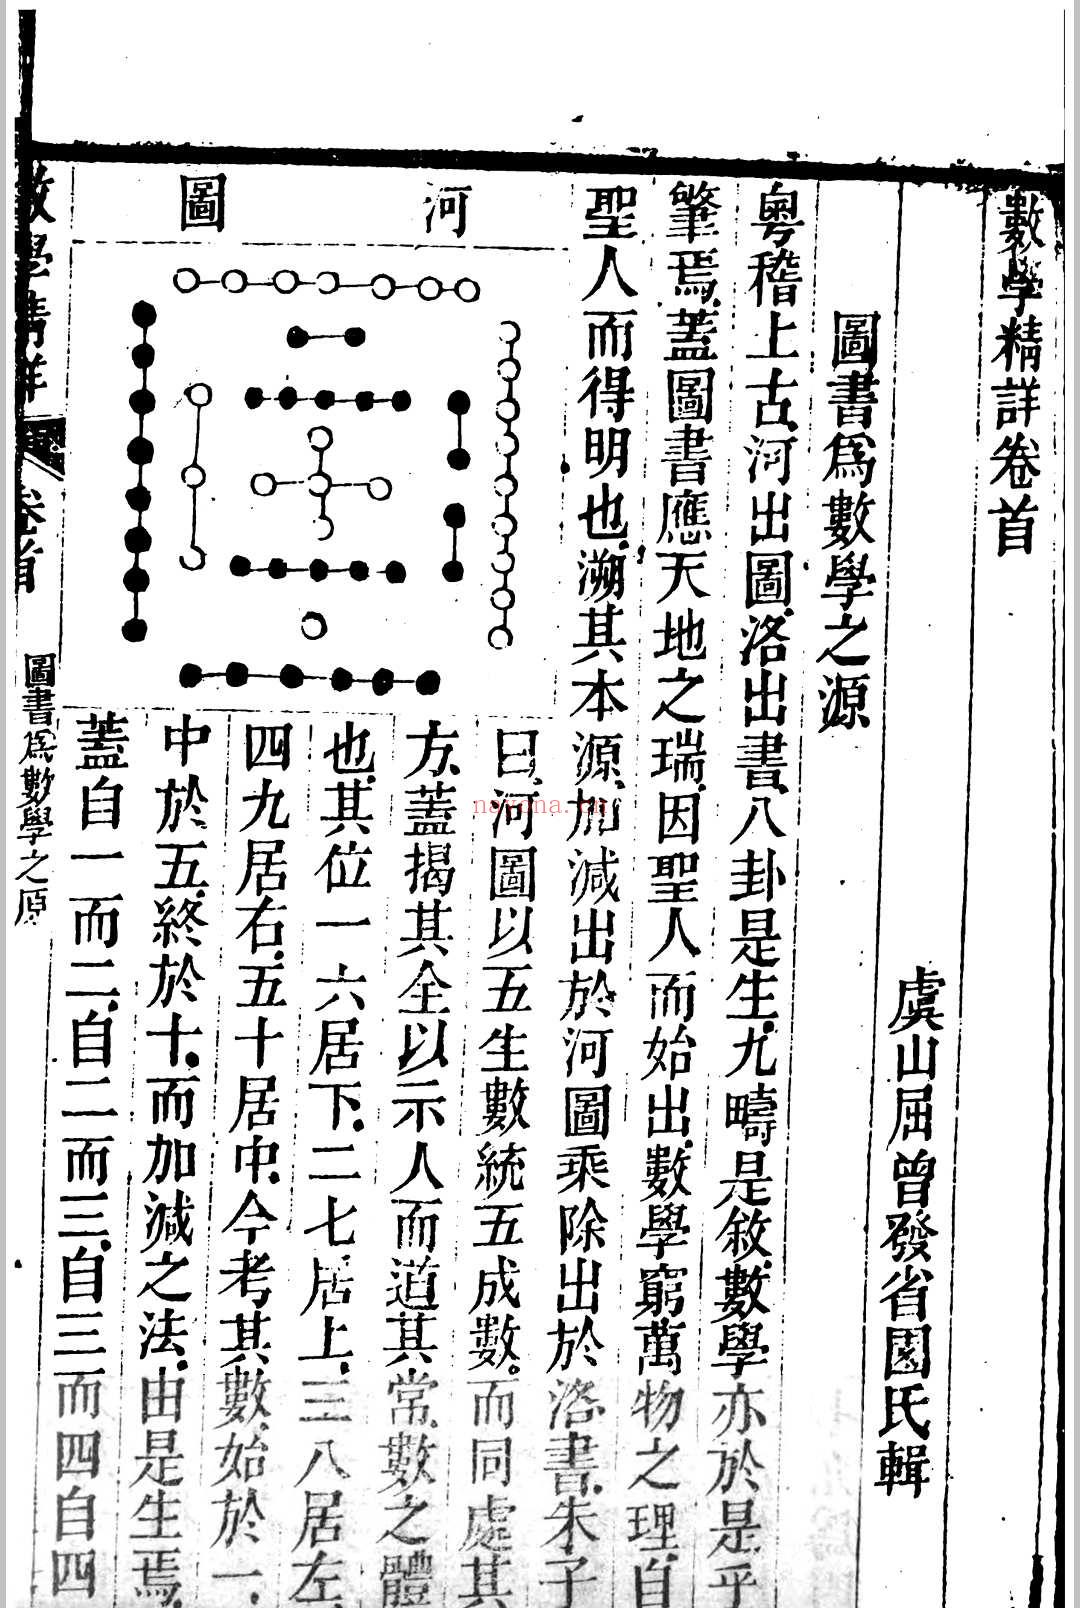 數學精詳卷首
虞山屈曾發省園氏輯
圖書爲數學之源
粤稽上古河出圖洛出書八卦是生九疇是敘數學亦於是乎
肇焉蓋圖書應天地之瑞因聖人而始出數學窮萬物之理自
聖人而得明也溯其本源加減出於河圖乘除出於洛書朱子
河圖
曰河圖以五生數統五成數而同處其
方蓋揭其全以示人而道其常數之體
也其位一六居下二七居上三八居左
四九居右五十居中今考其數始於一
中於五終於十而加減之法由是生焉
蓋自一而二自二而三自三而四自四
數學精詳 卷首 圖書爲數學之原
nayona.cn